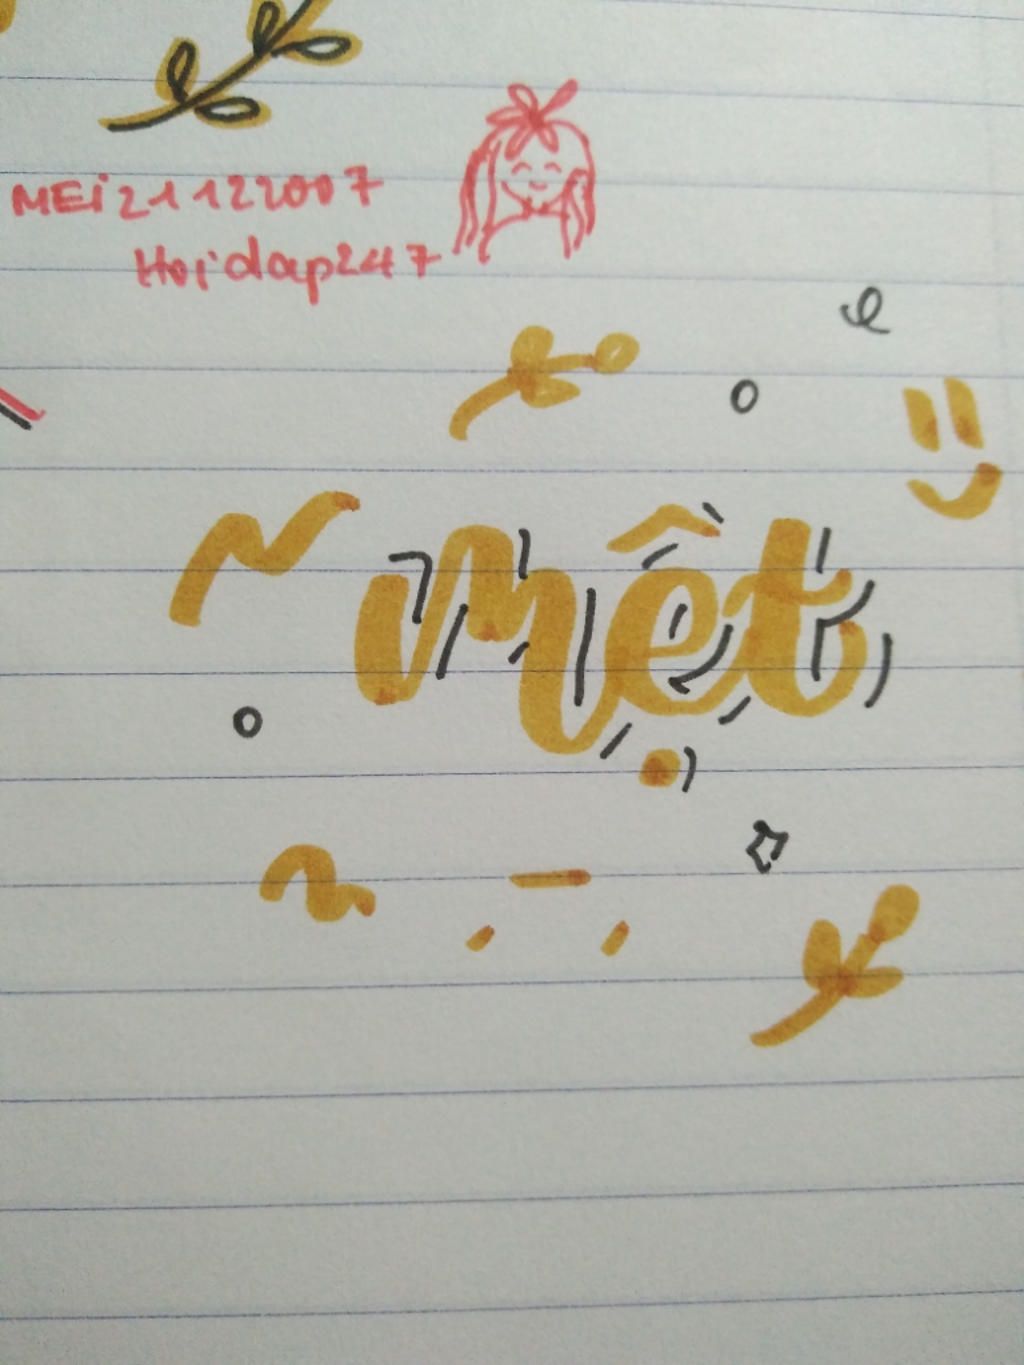 MEi21122007
Hoidap247
mệt